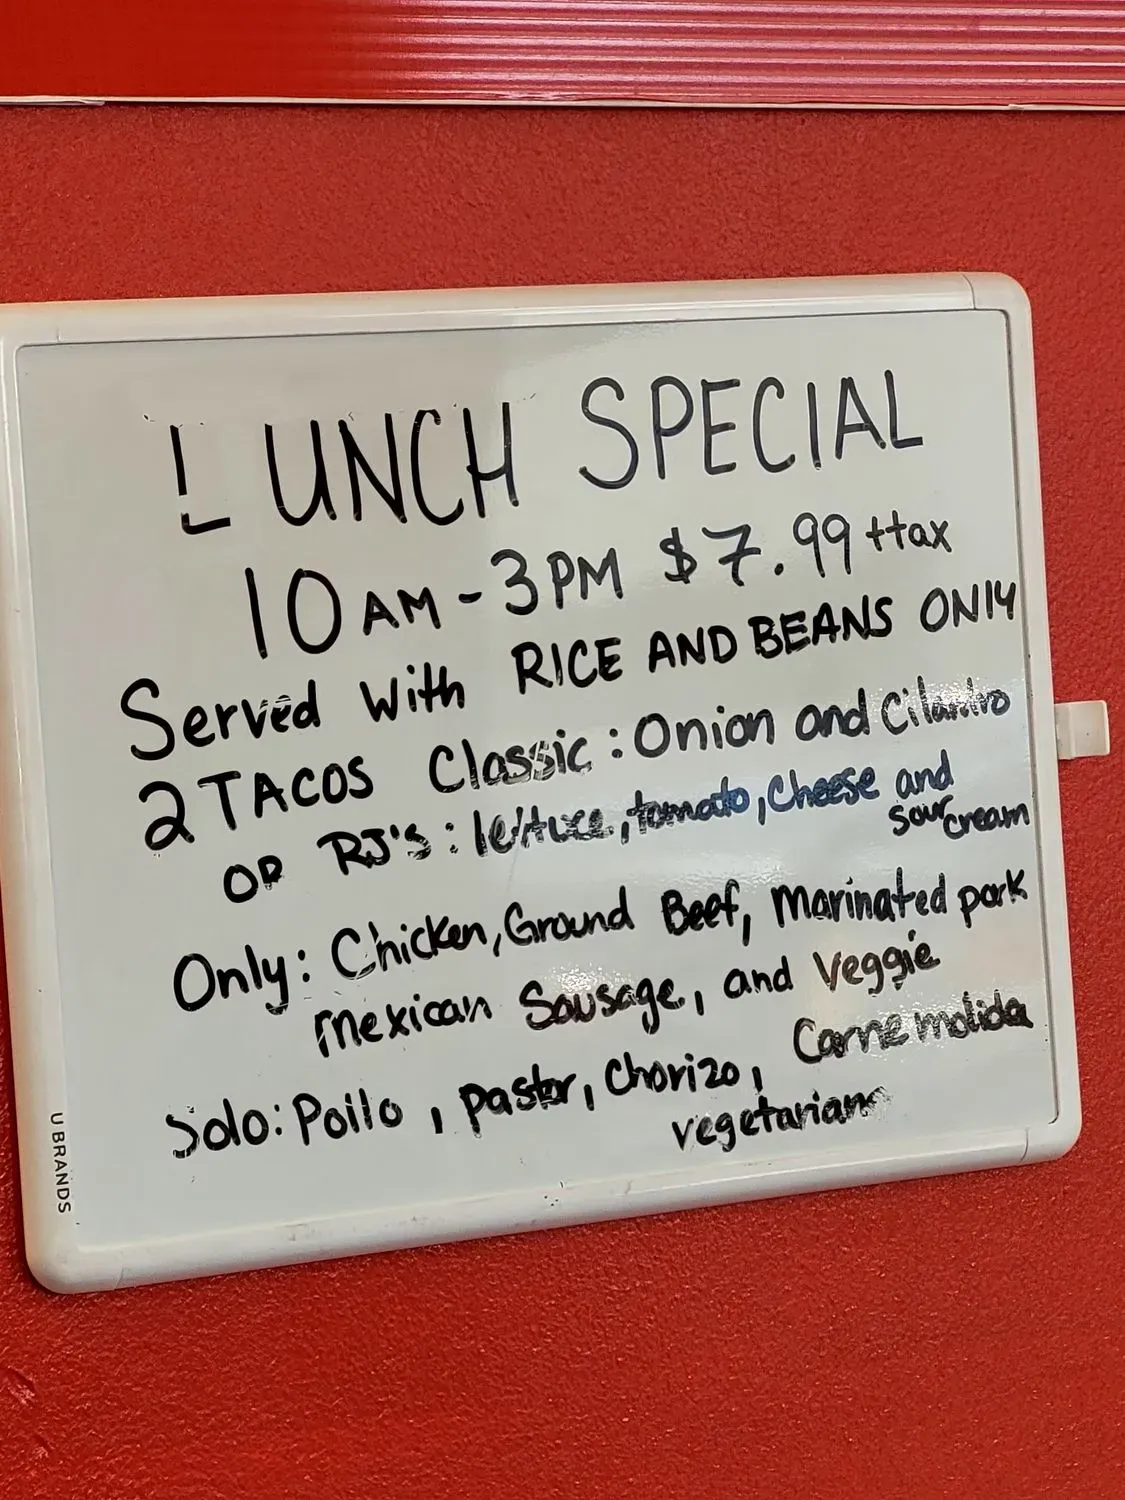 LUNCH SPECIAL
10AM - 3PM $7.99 +tax
Served with RICE AND BEANS ONlY
2 TACOS Classic: Onion and Cilantro
OR RJ's: lettuce, tomato, Cheese and
sour cream
Only: Chicken, Ground Beef, Marinated pork
Mexican Sausage, and Veggie
Solo: Pollo, pastor, Chorizo, Carne molida
vegetariano
U BRANDS